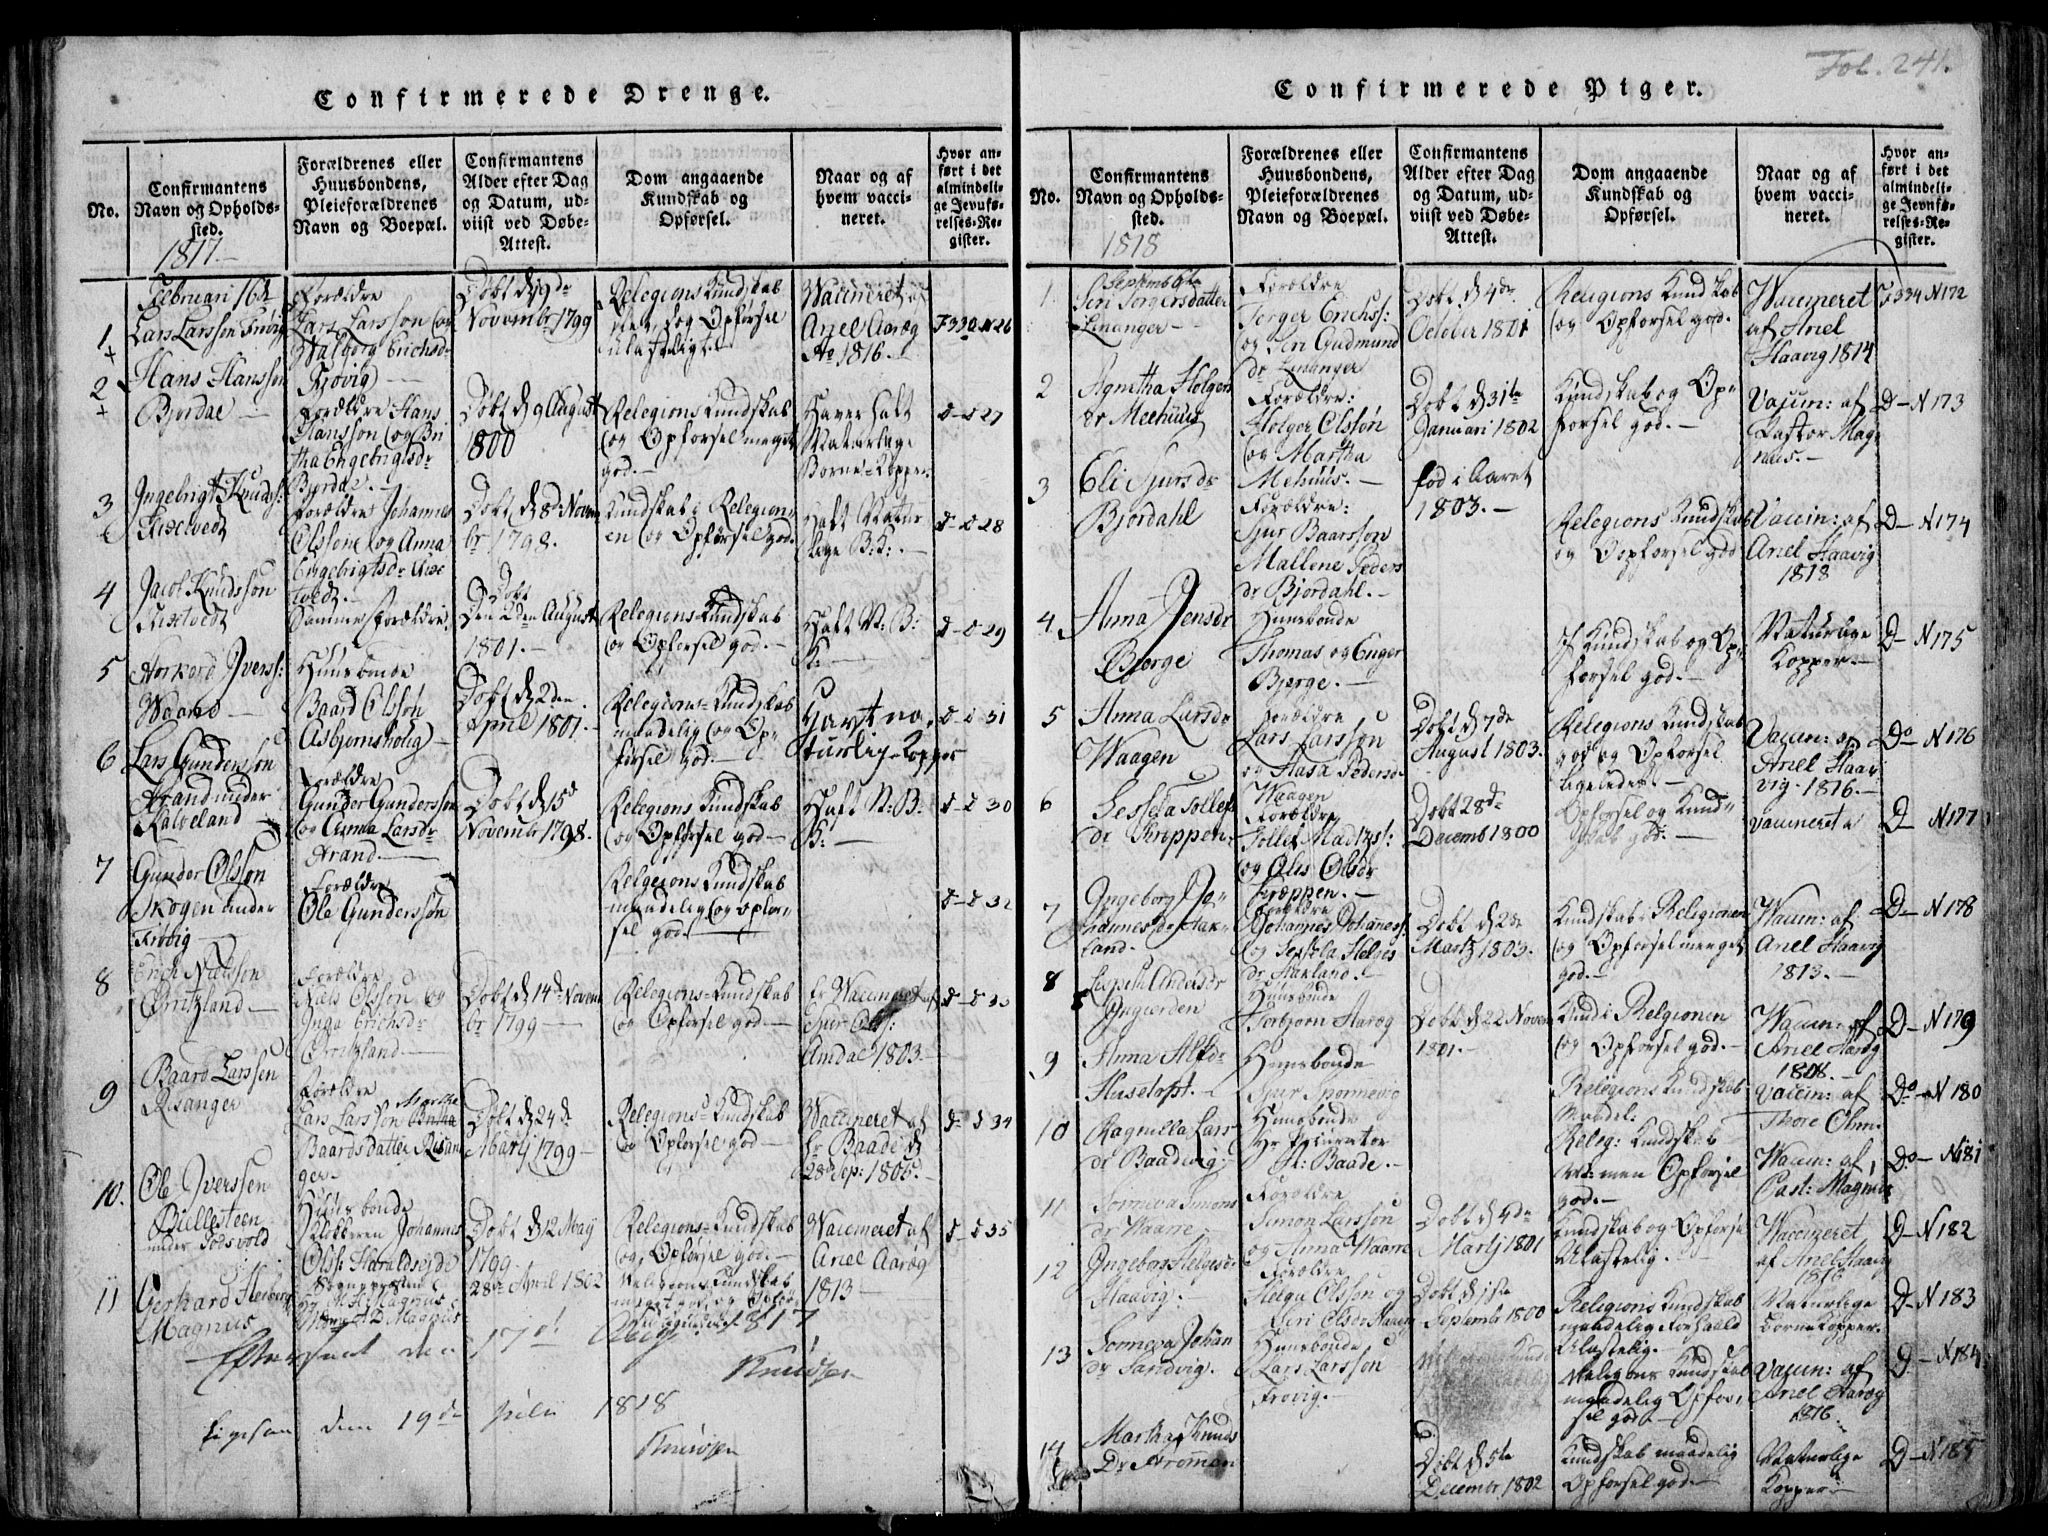 Fol. 241.
Confirmerede Drenge.
No.
Confirmantens
Navn og Opholds-
sted.
1817.
Forældrenes eller
Huusbondens,
Pleieforældrenes
Navn og Boepæl.
Confirmantens
Alder efter Dag
og Datum, ud-
viist ved Døbe-
Attest.
Dom angaaende
Kundskab og
Opførsel.
Naar og af
hvem vacci-
neret.
Hvor an-
ført i det
almindeli-
ge Jevnfø-
relses-Re-
gister.
Februari 16de
1
Lars Larsson Frövig
Forældre
Lars Larsson og
Walborg Erichsdr
Frövig
Döbt d 19de
Novembr 1799
Relegions Kundskab
og Opförsel
ulasteligt
Waccineret af
Anel Aaræg
Ao 1816.
F 330 N 26
2
Hans Hansson
Bjordal
Forældre Hans
Hansson og Bri
tha Engebrigtsdr
Bjordal.
Döbt d 9 August
1800
Relegions Kundskab
og Opförsel meget
god.
Haver haft
Naturlige
Börne-Kopper
D - D 27
3
Ingebrigt Knuds:
Forældre Johannes
Olsson og Anna
Engebrigtsdr
Döbt d 8d Novem
br 1798.
Kundskab i Relegion
en og Opförsel god.
Haft Natur
lige B: K:
D - D 28
4
Jacob Knudsson
Samme Forældre.
Döbt
Den 2den August
1801.
Relegions-Kundskab
og Opförsel god.
Haft N: B:
K:
D - D 29
5
Norkord Iverss:
Waane
Huusbonde
Baard Olsson
Asbjornshoug
Döbt d 2den
April 1801.
Relegions-Kundskab
maadelig og Op-
försel god.
Havt na-
turlige Kopper
D - D 31
6
Lars Gundersson
Strand under
Kalveland
Forældre
Gunder Gundersson
og Anna Larsdr
Strand.
Döbt d 15d
Novembr 1798.
Relegions Kundskab
og Opförsel god
Haft N: B:
K:
D - D 30
7
Gunder Olsson
Skogen under
Frövig
Forældre
Ole Gundersson
Relegions Kundskab
maadelig og opför-
sel god.
D - D 32
8
Erich Nielsson
Öritzland
Forældre
Niels Olsson og
Inga Erichsdr
Öritzland
Döbt d 14d Novem
br 1799
Relegions-Kundskab
og Opförsel god
Er Waccineret af
Sjur Ols:
Amdal 1803.
D - D 33
9
Baard Larssen
Risanger
Forældre
Lars Larsson Martha
Baardsdatter Risan
ger
Döbt d 24d
Martj 1799
Relegions Kundskab
og Opförsel god
Waccineret af
Hr Baade d
28d Sep: 1805.
D - D 34
10.
Ole Iverssen
Biellesteen
under Tolsvold
Huusbonde
Klokkeren Johannes
Olss: Haraldseide
Döbt d 12 Maij
1799
Relegions-Kundskab
og Opförsel god.
Waccineret af
Anel Aaræg
1813
D - D 35
11
Gerhard Heiberg
Magnus
Sognepræsten
Hr M: H: Magnus
28de April 1802
Religions Kundskab
meget god, og Opför-
Efterseet den 17de 1817
Knudsen
den 19de julii 1818
Knudsen
Confirmerede Piger.
No.
Confirmantens
Navn og Opholds-
sted.
1818
Forældrenes eller
Huusbondens,
Pleieforældrenes
Navn og Boepæl.
Confirmantens
Alder efter Dag
og Datum, ud-
viist ved Døbe-
Attest.
Dom angaaende
Kundskab og
Opførsel.
Naar og af
hvem vacci-
neret.
Hvor an-
ført i det
almindeli-
ge Jevnfø-
relses-Re-
gister.
1.
Siri Torgersdatter
Linanger
Forældre
Torger Erichss:
og Siri Gudmund
dr Linanger
Döbt d 4de
October 1801
Religions Kundskab
og Opförsel god.
Waccineret
af Anel
Haavig 1814
F 334 N 172
2
Agnetha Holgers
dr Meehuus
Forældre:
Holger Olsson
og Martha
Mehuus.
Döbt d 31te
Januari 1802
Kundskab og Op-
försel god.
Vaccin: af
Pastor Mag
nus.
D - N 173
3
Eli Sjursdr
Bjordahl
Forældre:
Sjur Baarsson
Mallene Peders
dr Bjordahl.
fød i Aaret
1803.
Relegions Kundskab
og Opförsel god
Vaccin: af
Anel Haavig
1818
D - N 174
4
Anna Jensdr
Bjerge
Huusbonde
Thomas og Enger
Bjerge.
Kundskab og Op-
försel god.
Naturlige
Kopper.
D - N 175
5
Anna Larsdr
Waagen
Forældre
Lars Larsson
og Aasa Pedersdr
Waagen
Döbt d 7de
August 1803.
Relegions Kundskab
god og Opförsel
ligeledes.
Vaccin: af
Anel Haa-
vig. 1816.
Do - N 176
6
Sessela Tollefs
dr Kreppen
Forældre
Tollef Madtzs:
og Olis Olsdr
Kræppen.
Döbt 28de
Decemb 1800
Opförsel og Kund-
skab god.
vaccineret
D - N 177
7
Ingeborg Jo-
hannesdr Aak-
land.
Forældre
Johannes Johannes:
og Sessela Helges
dr Aakland.
Döbt d 2de
Martz 1803.
Kundskab i Religionen
og Opförsel meeget
god.
Waccin: af
Anel Haavig
1813.
D - N 178
8
Lispeth Andersdr
Huusbonde
Torbjorn Aaræg
Döbt d 22 Novem
1801.
Kund: i Religionen
og Opförsel god.
Waccin: af
Anel Aaræg
1808.
D - N 179
9
Anna Alfdr
Huusbonde
Religions Kundskab
Maadel:
Vaccin: af
Thore Ohm.
Do - N 180
10
Ragnilla Lars
dr Baadevig
Huusbonde
Hr Procurator
A: Baade.
Releg: Kundskab
men Opförsel
god.
Waccin: af
Past: Magnus
Do - N 181
11
Sonneva Simons
dr Waare
Forældre
Simon Larsson
og Anna Waare
Döbt d 4de
Martj 1801
Kundskab og Opförsel
Ulastelig.
Waccineret
af Anel Haavig
1816
D - N 182
12
Ingebor Helgesdr
Haavig.
Forældre
Helge Olsson og
Siri Olsdr
Döbt d 1ste
Septembr 1800
Religions Kundskab
maadelig Forhold
Ulastelig.
Naturlige
Börne Kopper.
D - N 183
13
Sonneva Johan
dr Sandvig.
Huusbonde
Lars Larsson
Frovig.
Religions Kundskab
maadelig Opför-
sel god.
Vaccin: af
Anel Aaræg
1816
D - N 184
14
Martha Knuds
Dr Strömmen
Döbt d 5te
Decembr 1802
Kundskab maadelig
Opförsel god.
Naturlige
Kopper
D - N 185